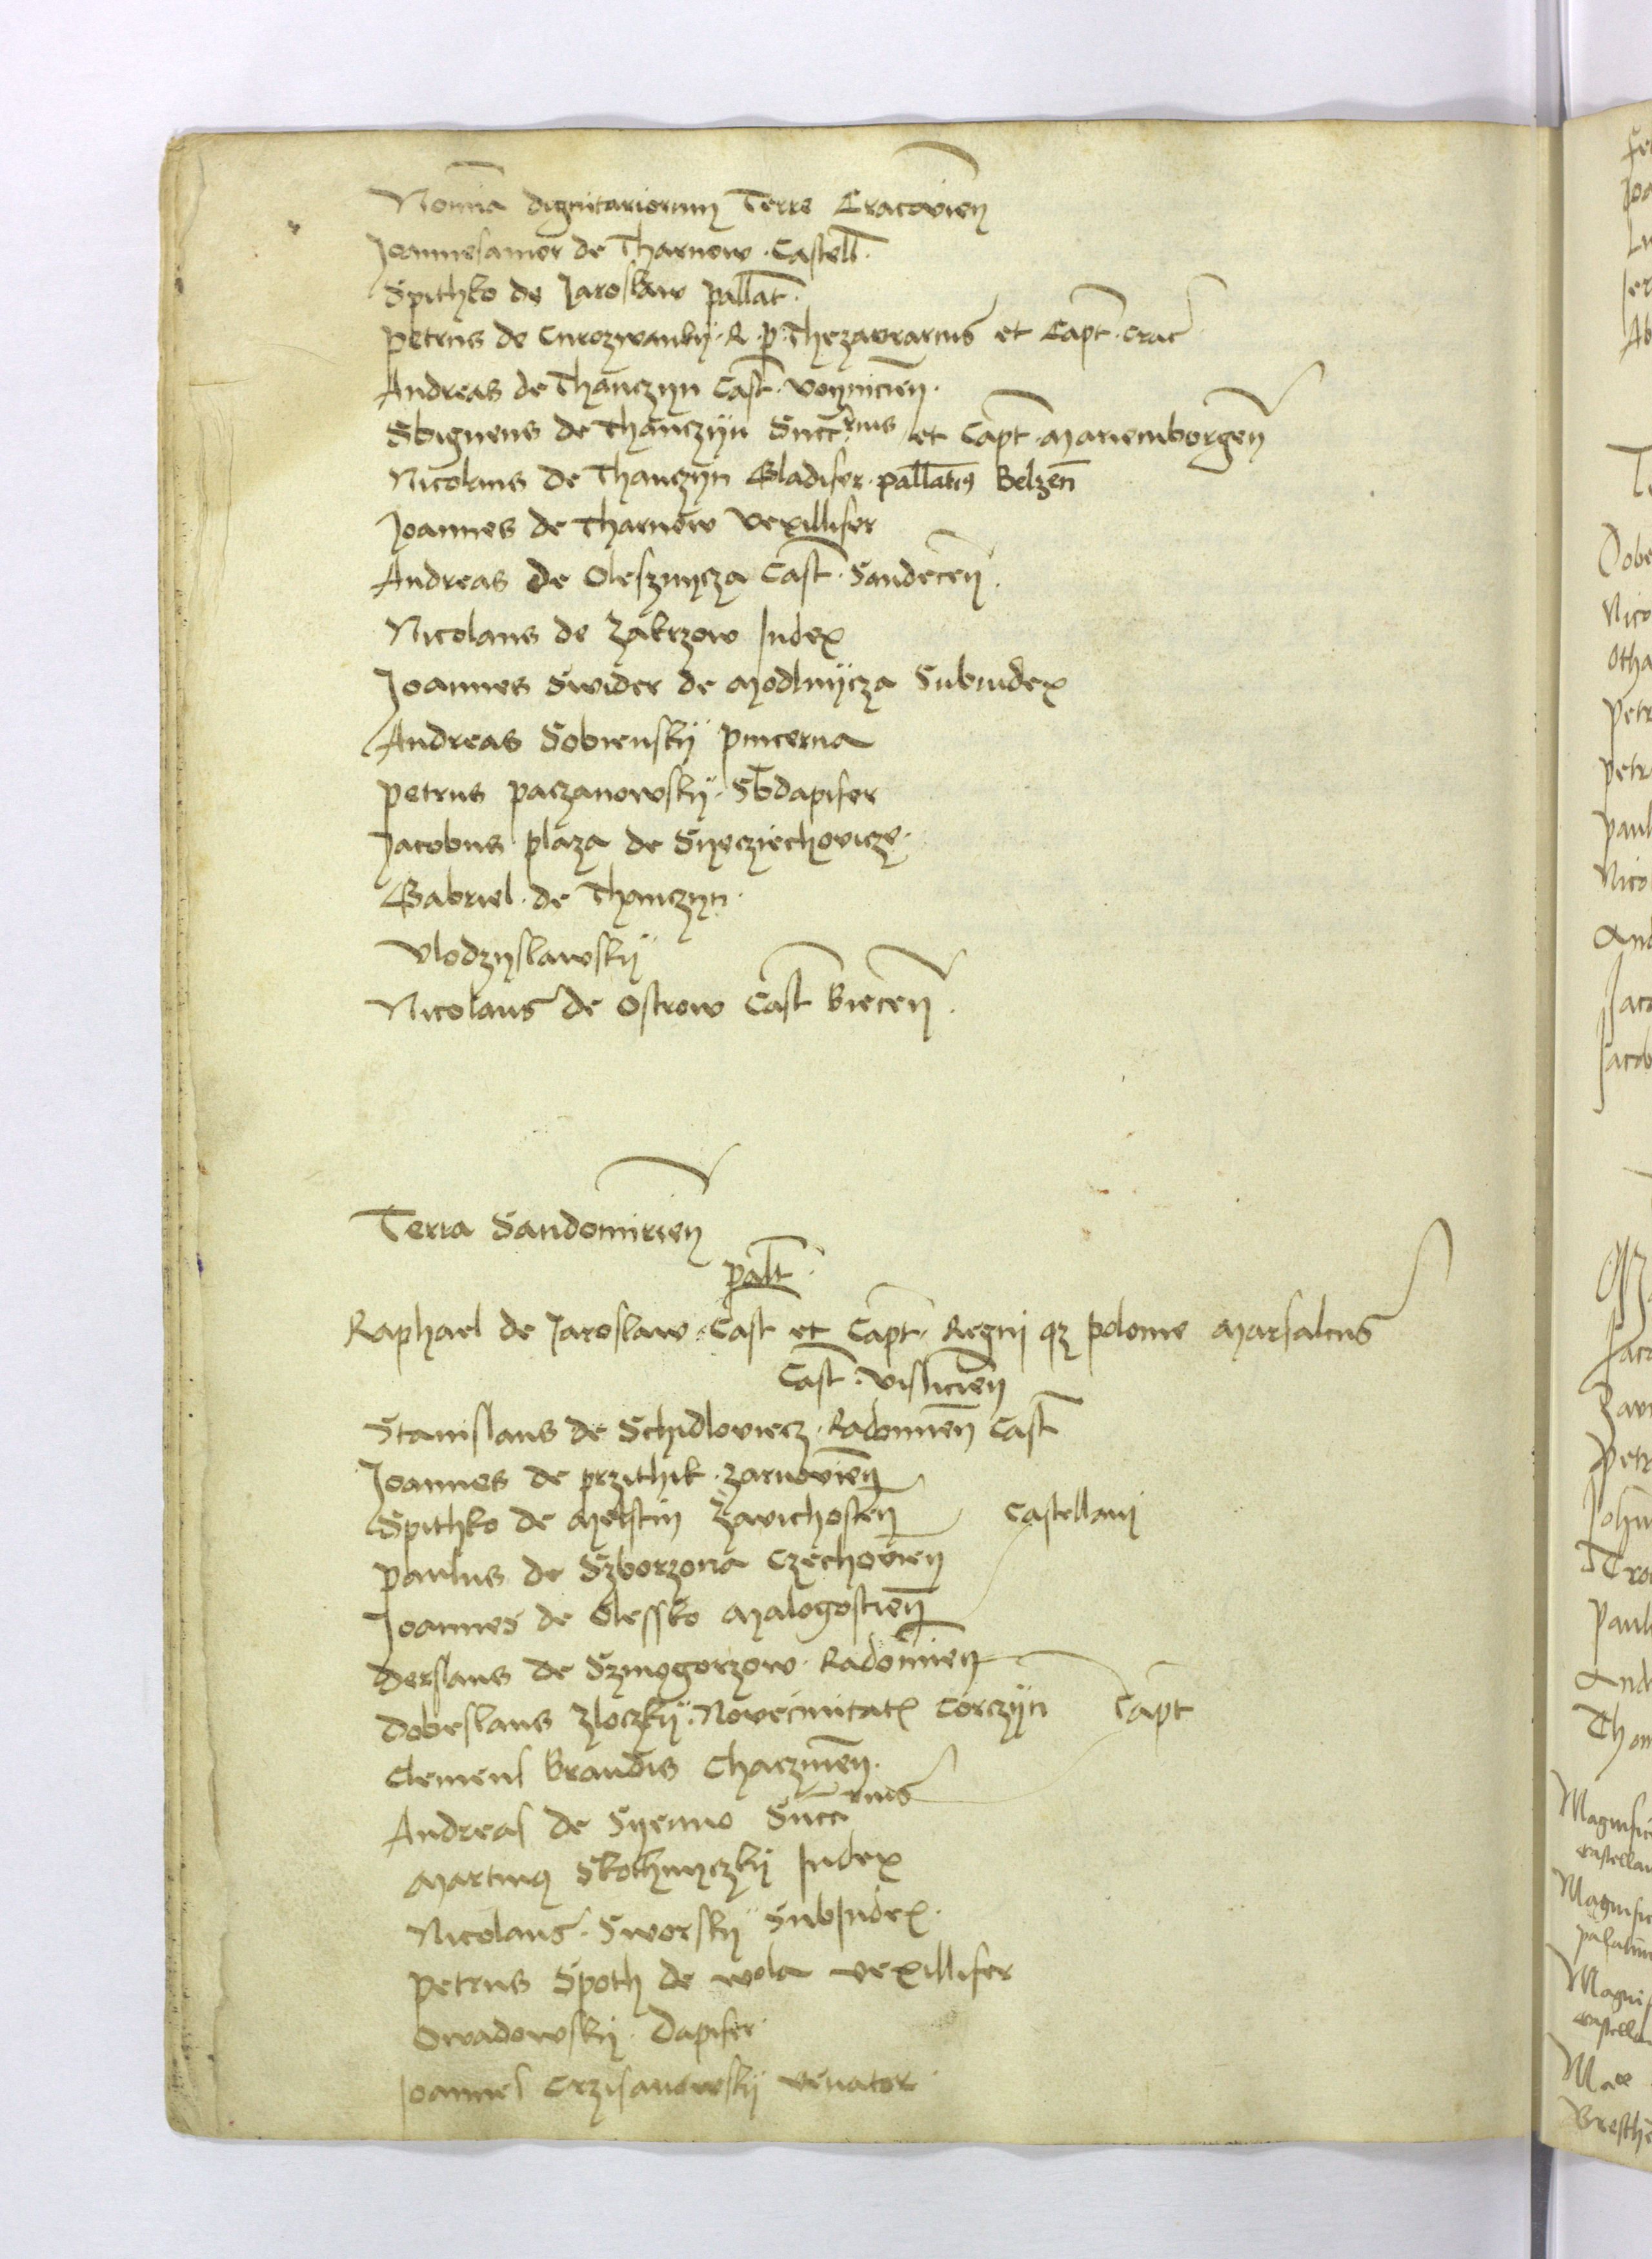 Nomina dignitariorum Terre Cracovien
Joannes amor de Tharnow. Castell.
Spithko de Jaroslaw pallat.
Petrus de Curozwanky. R. p. Thezaurarius et Capt. crac
Andreas de Thanczyn Cast. voynicien.
Sbigneus de Thanczyn Succrius et Capt. Mariemborgen
Nicolaus de Thanczyn Gladifer. pallatus Belzen
Joannes de Tharnow Vexillifer
Andreas de Olesznycza Cast. Sandecen.
Nicolaus de Zakrzow Judex
Joannes Swider de Modlnycza Subiudex
Andreas Sobiensky pincerna
Petrus paczanowsky. Sbdapifer
Jacobus plaza de Syecziechovicze.
Gabriel. de Thanczyn.
Vlodzyslawsky
Nicolaus de Ostrow Cast Biecen.
Terra Sandomirien
palt.
Raphael de Jaroslaw. Cast et Capt. Regni qz polonie Marsalcus
Cast. vislicien
Stanislaus de Schidloviecz. Radomien Cast
Joannes de przithik. zarnovien
Spithko de Melstin Zavichosten Castellani
Paulus de Szborzona Czechovien
Joannes de Olessko Malogostien
Derslaus de Szmogorzow. Radomien
Dobeslaus Zloczky. Nove civitatis Corczyn Capt
Clemens Brandis Chaczinen.
Andreas de Syenno Succrius
Martinus Skothnyczky Judex
Nicolaus. Sworsky SubJudex.
Petrus Spoth de wola vexillifer
Owadowsky. Dapifer.
Joannes Crzisanowsky venator.
Magnific
castellan
Magnific
palatin
castella